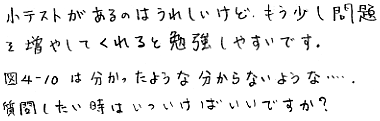 小テストがあるのはうれしいけど、もう少し問題
を増やしてくれると勉強しやすいです。
図4-10 は分かったような分からないような…。
質問したい時はいついけばいいですか？